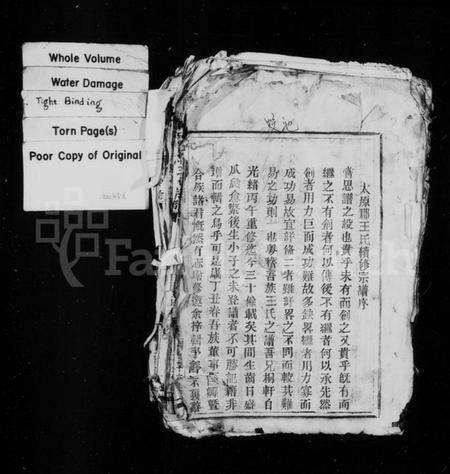 Whole Volume
Water Damage
Tight Binding
Torn Page(s)
Poor Copy of Original
太原郡王氏續修宗譜序
嘗思譜之綻也貴乎未有而創之又貴乎旣有而
繼之不有創者何以傳後不有繼者何以承先然
創者用力巨而成功難故多缺畧繼者用力寡而
成功易故宜詳條二者難詳畧之不同而較其難
易之功則一也粤稽吾族王氏之譜吾兄桐軒自
光緒丙午重修迄今三十餘載矣其間生齒日盛
瓜瓞愈繁後生小子之未登譜者不可勝記將非
增而輯之烏乎可是歲丁丑春吾族董事
合族諸君慨然有志續修愈梓輯予